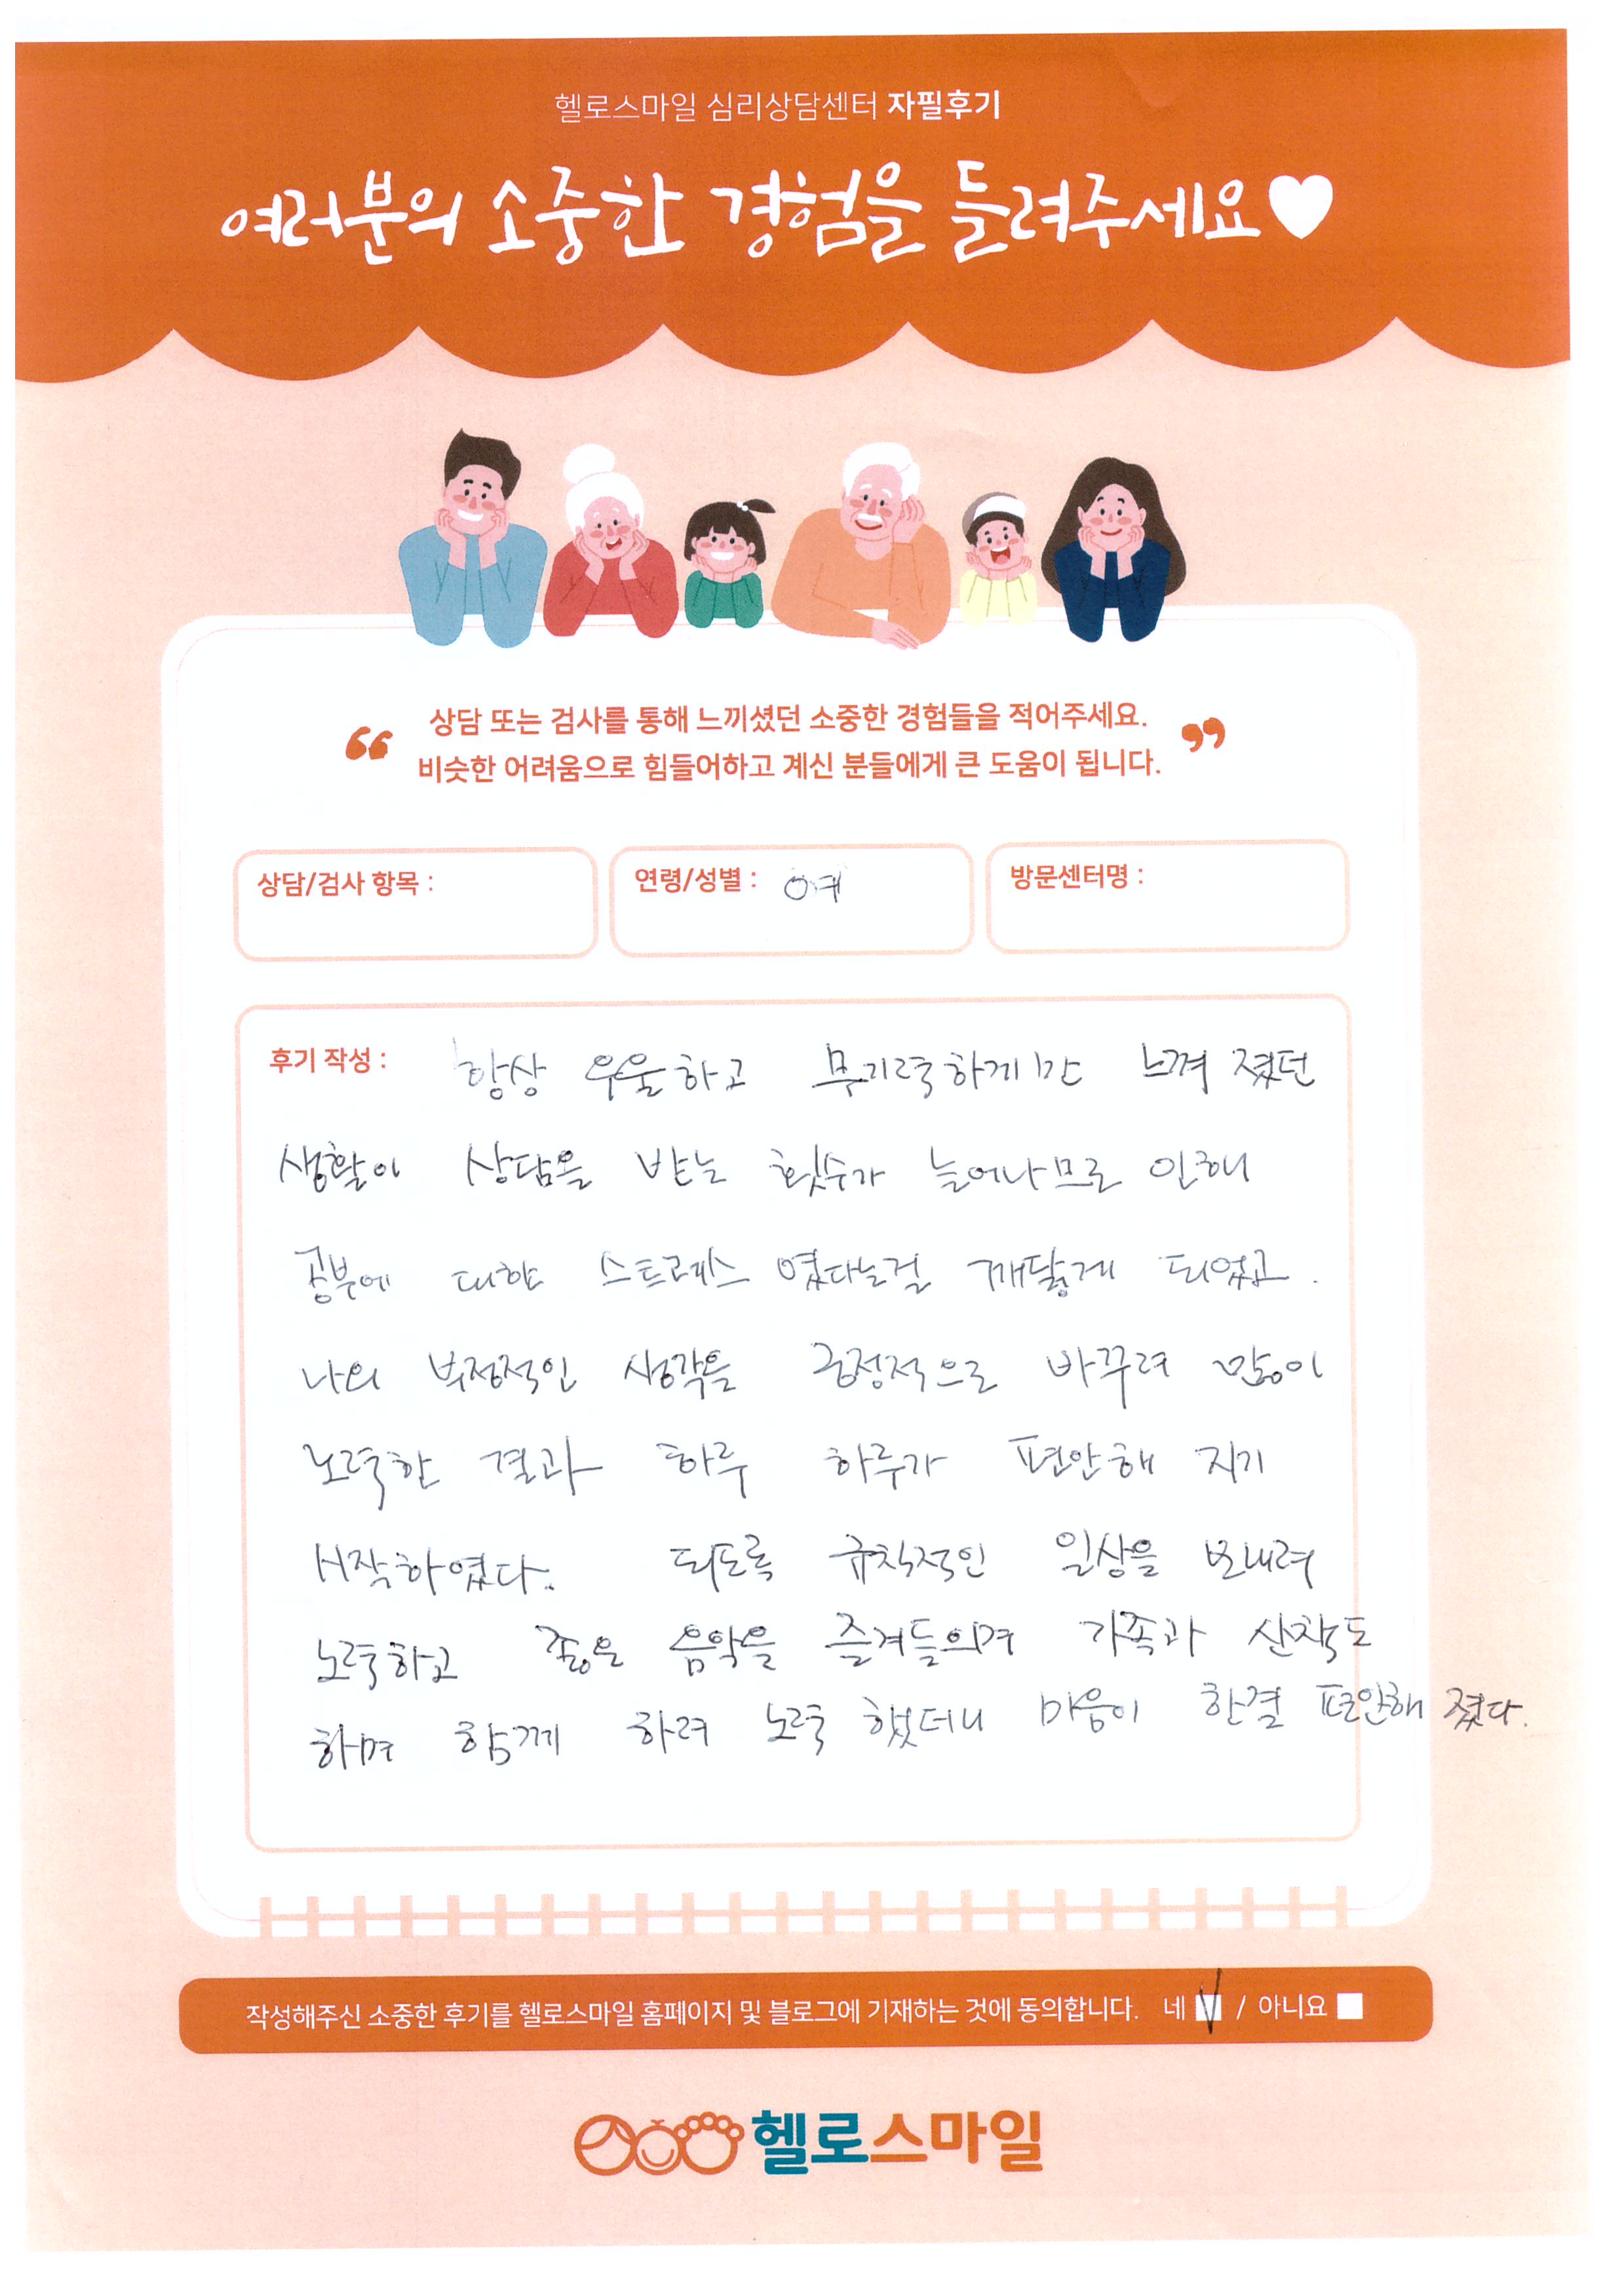 헬로스마일 심리상담센터 자필후기
여러분의 소중한 경험을 들려주세요
상담 또는 검사를 통해 느끼셨던 소중한 경험들을 적어주세요.
비슷한 어려움으로 힘들어하고 계신 분들에게 큰 도움이 됩니다.
상담/검사 항목 :
연령/성별 : 여
방문센터명 :
후기 작성 : 항상 우울하고 무기력하게만 느껴 졌던
생활이 상담을 받는 횟수가 늘어나므로 인해
공부에 대한 스트레스 였다는걸 깨닳게 되었고.
나의 부정적인 생각을 긍정적으로 바꾸려 많이
노력한 결과 하루 하루가 편안해 지기
시작하였다. 되도록 규칙적인 일상을 보내려
노력하고 좋은 음악을 즐겨들의며 가족과 산책도
하며 함께 하려 노력 했더니 마음이 한결 편안해 졌다.
작성해주신 소중한 후기를 헬로스마일 홈페이지 및 블로그에 기재하는 것에 동의합니다. 네 / 아니요
헬로스마일